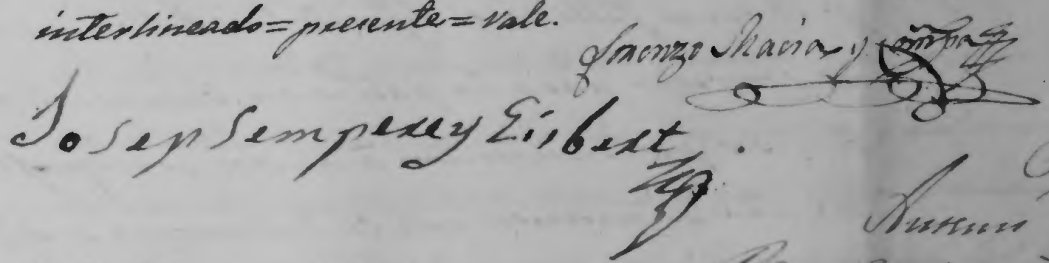 interlineado=presente=vale.
Lorenzo Macia y Compa
Josep Sempere y Gisbert